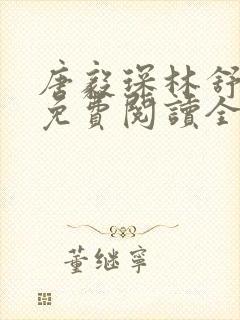 唐毅琛林舒
免費閱讀全
董继寧